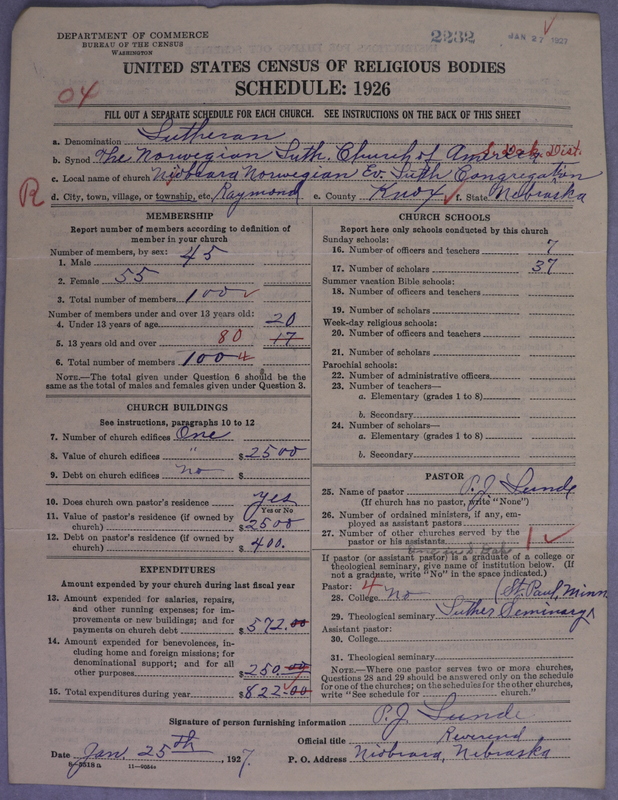 DEPARTMENT OF COMMERCE
BUREAU OF THE CENSUS
WASHINGTON
2232
JAN 27 1927
UNITED STATES CENSUS OF RELIGIOUS BODIES
SCHEDULE: 1926
04
FILL OUT A SEPARATE SCHEDULE FOR EACH CHURCH. SEE INSTRUCTIONS ON THE BACK OF THIS SHEET
a. Denomination Lutheran
b. Synod The Norwegian Luth. Church of America So. Dak. Dist.
c. Local name of church Niobrara Norwegian Ev. Luth Congregation
R
d. City, town, village, or township, etc. Raymond e. County Knox f. State Nebraska
MEMBERSHIP
Report number of members according to definition of
member in your church
Number of members, by sex:
1. Male 45
2. Female 55
3. Total number of members 100
Number of members under and over 13 years old:
4. Under 13 years of age 20
5. 13 years old and over 80 17
6. Total number of members 100 4
NOTE.—The total given under Question 6 should be the
same as the total of males and females given under Question 3.
CHURCH BUILDINGS
See instructions, paragraphs 10 to 12
7. Number of church edifices One
8. Value of church edifices " $2500
9. Debt on church edifices No $
10. Does church own pastor's residence Yes
Yes or No
11. Value of pastor's residence (if owned by
church) $2500
12. Debt on pastor's residence (if owned by
church) $400.
EXPENDITURES
Amount expended by your church during last fiscal year
13. Amount expended for salaries, repairs,
and other running expenses; for im-
provements or new buildings; and for
payments on church debt $572.00
14. Amount expended for benevolences, in-
cluding home and foreign missions; for
denominational support; and for all
other purposes $250.00
15. Total expenditures during year $822.00
CHURCH SCHOOLS
Report here only schools conducted by this church
Sunday schools:
16. Number of officers and teachers 7
17. Number of scholars 37
Summer vacation Bible schools:
18. Number of officers and teachers
19. Number of scholars
Week-day religious schools:
20. Number of officers and teachers
21. Number of scholars
Parochial schools:
22. Number of administrative officers
23. Number of teachers—
a. Elementary (grades 1 to 8)
b. Secondary
24. Number of scholars—
a. Elementary (grades 1 to 8)
b. Secondary
PASTOR
25. Name of pastor P. J. Lunde
(If church has no pastor, write "None")
26. Number of ordained ministers, if any, em-
ployed as assistant pastors
27. Number of other churches served by the
pastor or his assistants 1
One in S. Dak
If pastor (or assistant pastor) is a graduate of a college or
theological seminary, give name of institution below. (If
not a graduate, write "No" in the space indicated.)
Pastor: 4
28. College No (St. Paul, Minn
29. Theological seminary Luther Seminary
Assistant pastor:
30. College
31. Theological seminary
NOTE.—Where one pastor serves two or more churches,
Questions 28 and 29 should be answered only on the schedule
for one of the churches; on the schedules for the other churches,
write "See schedule for church."
Signature of person furnishing information P. J. Lunde
Official title Reverend
Date Jan. 25th, 1927. P. O. Address Niobrara, Nebraska
8—5518a 11—9664a